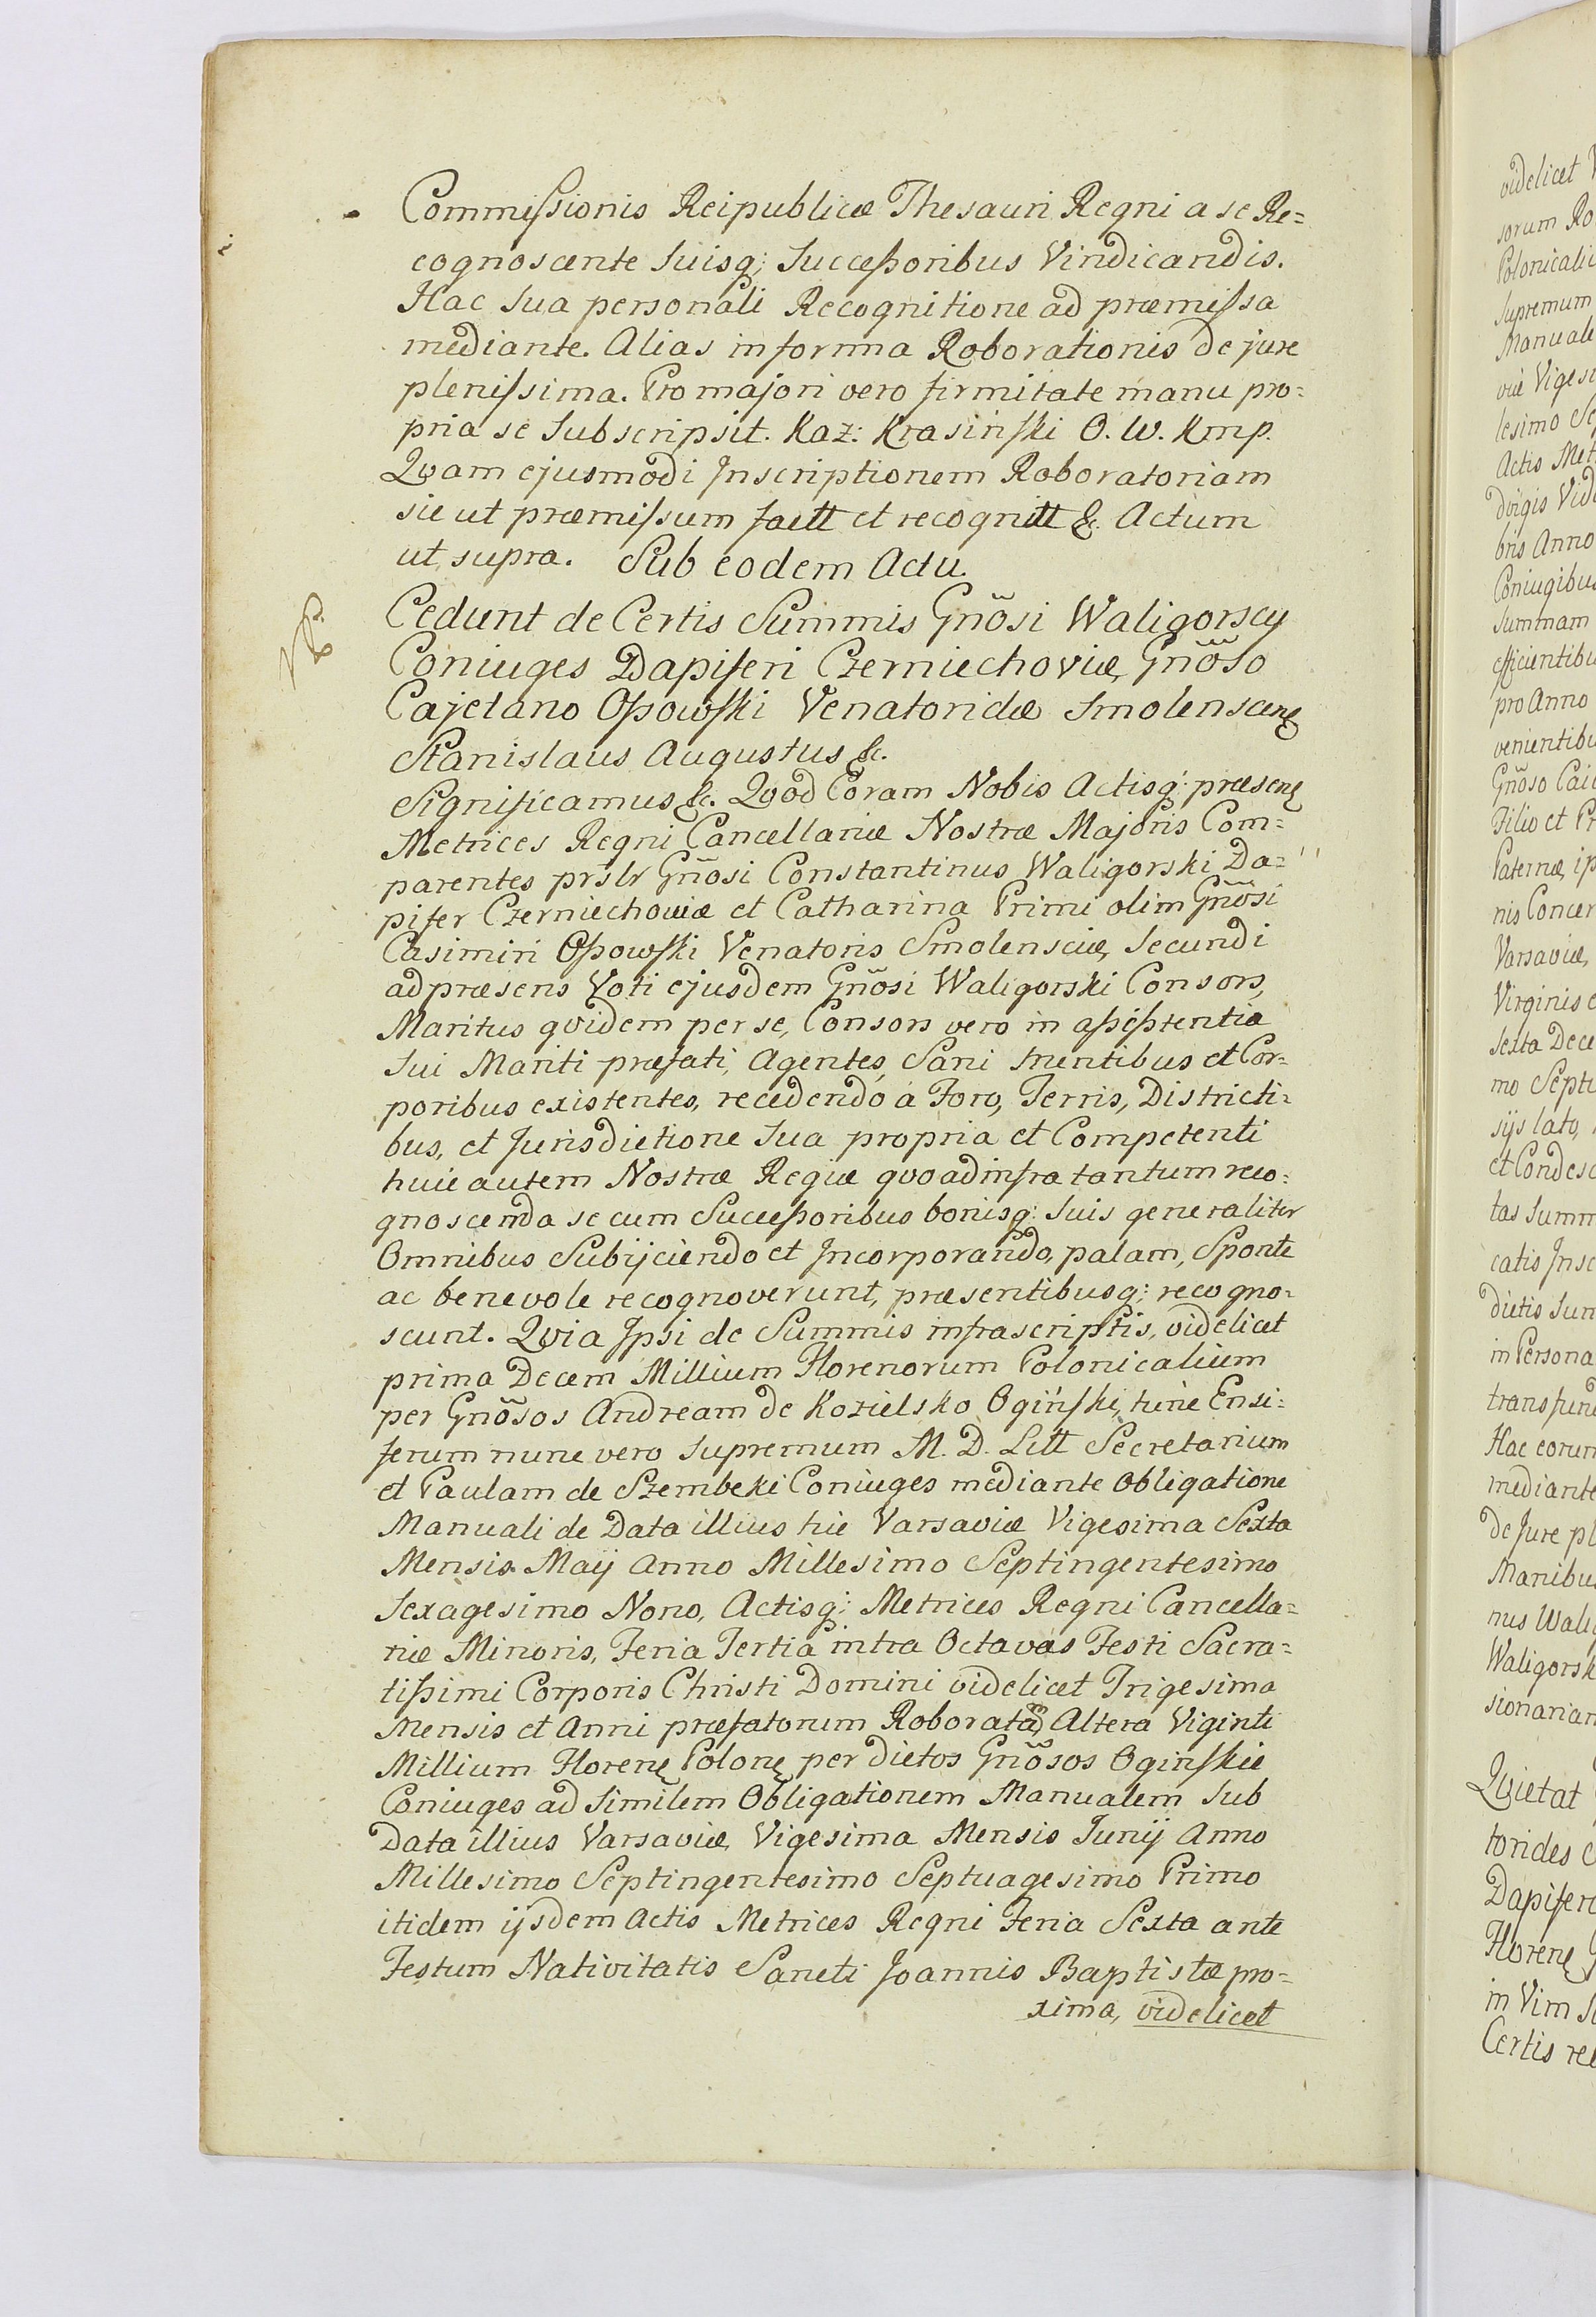 Commissionis Reipublicæ Thesauri Regni a se Re=
cognoscente Suisq; Successoribus Vindicandis.
Hac Sua personali Recognitione ad præmissa
mediante. Alias in forma Roborationis de jure
plenissima. Pro majori vero firmitate manu pro=
pria se Subscripsit. Kaz: Krasiński O. W. Kmp.
Qvam ejusmodi Inscriptionem Roboratoriam
sic ut præmissum factt et recognitt &. Actum
ut supra. Sub eodem Actu.
NB
Cedunt de Certis Summis Gñosi Waligorscy
Coniuges Dapiferi Czerniechoviæ, Gñoso
Cajetano Ossowski Venatoridæ Smolenscene
Stanislaus Augustus &c.
Significamus &c. Qvod Coram Nobis Actisq: præsene
Metrices Regni Cancellariæ Nostræ Majoris Com=
parentes prslr Gñosi Constantinus Waligorski Da=
pifer Czerniechowiæ et Catharina Primi olim Gñosi
Casimiri Ossowski Venatoris Smolensciæ, Secundi
ad præsens Voti ejusdem Gñosi Waligorski Consors,
Maritus qvidem per se, Consors vero in assistentia
Sui Mariti præfati, Agentes, Sani Mentibus et Cor=
poribus existentes, recedendo a Foro, Terris, Districti=
bus, et Jurisdictione Sua propria et Competenti
huic autem Nostræ Regiæ qvo ad infra tantum reco=
gnoscenda se cum Successoribus bonisq: Suis generaliter
Omnibus Subijciendo et Incorporando, palam, Sponte
ac benevole recognoverunt, præsentibusq; recogno=
scunt. Qvia Ipsi de Summis infrascriptis, videlicet
prima Decem Millium Florenorum Polonicalium
per Gñosos Andream de Kozielsko Ogiński, tunc Ensi=
ferum nunc vero Supremum M. D. Litt Secretarium
et Paulam de Szembeki Coniuges mediante Obligatione
Manuali de Data illius hic Varsaviæ Vigesima Sexta
Mensis Maij Anno Millesimo Septingentesimo
Sexagesimo Nono, Actisq: Metrices Regni Cancella=
riæ Minoris, Feria Tertia intra Octavas Festi Sacra=
tissimi Corporis Christi Domini videlicet Trigesima
Mensis et Anni præfatorum Roboratam, Altera Viginti
Millium Florene Polone per dictos Gñosos Oginskie
Coniuges ad Similem Obligationem Manualem Sub
Data illius Varsaviæ, Vigesima Mensis Junij Anno
Millesimo Septingentesimo Septuagesimo Primo
itidem ijsdem Actis Metrices Regni Feria Sexta ante
Festum Nativitatis Sancti Joannis Baptistæ pro=
xima, videlicet